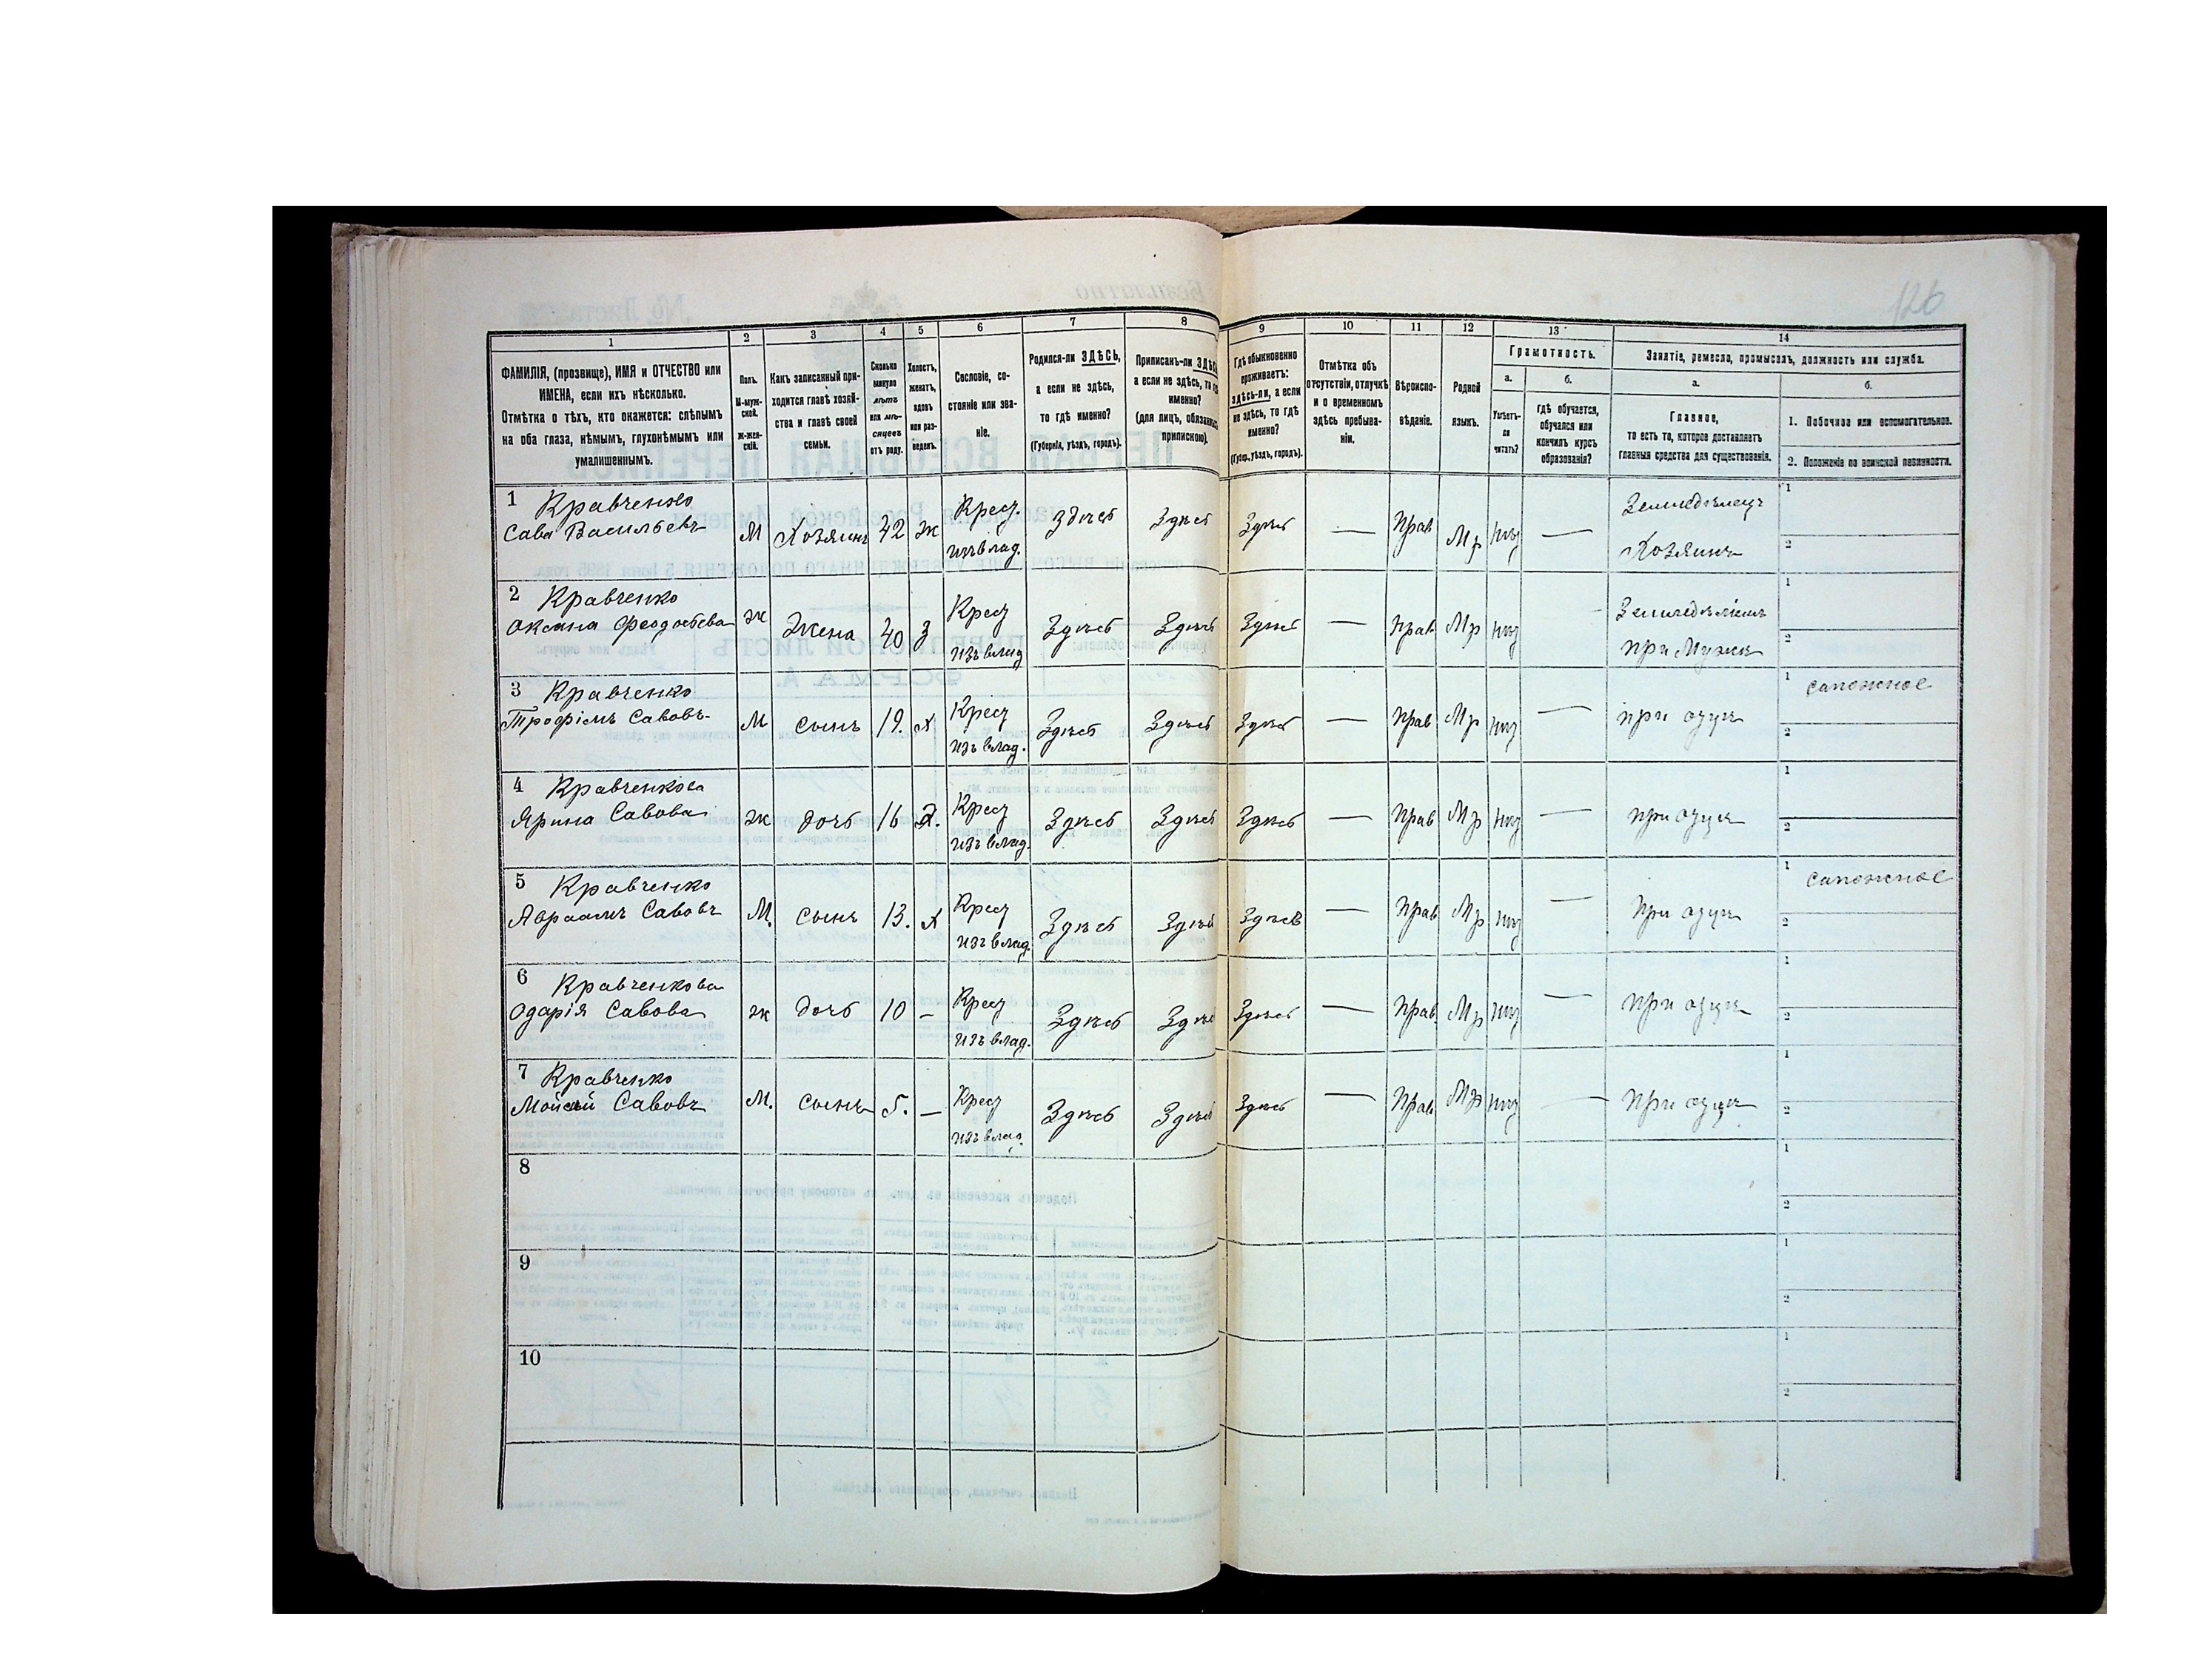 126
1 2 3 4 5 6 7 8 9 10 11 12 13 14
ФАМИЛІЯ, (прозвище), ИМЯ и ОТЧЕСТВО или
ИМЕНА, если ихъ нѣсколько.
Отмѣтка о тѣхъ, кто окажется: слѣпымъ
на оба глаза, нѣмымъ, глухонѣмымъ или
умалишеннымъ.
Полъ.
М-муж-
ской.
Ж-жен-
скій.
Какъ записанный при-
ходится главѣ хозяй-
ства и главѣ своей
семьи.
Сколько
минуло
лѣтъ
или мѣ-
сяцевъ
отъ роду.
Холостъ,
женатъ,
вдовъ
или раз-
веденъ.
Сословіе, со-
стояніе или зва-
ніе.
Родился-ли ЗДѢСЬ,
а если не здѣсь,
то гдѣ именно?
(Губернія, уѣздъ, городъ).
Приписанъ-ли
а если не здѣсь, то
именно?
(для лицъ,
припискою).
Гдѣ обыкновенно
проживаетъ:
здѣсь-ли, а если
не здѣсь, то гдѣ
именно?
(Губер., уѣздъ, городъ).
Отмѣтка объ
отсутствіи, отлучкѣ
и о временномъ
здѣсь пребыва-
ніи.
Вѣроиспо-
вѣданіе.
Родной
языкъ.
Грамотность.
а. б.
Умѣетъ-
ли
читать?
гдѣ обучается,
обучался или
кончилъ курсъ
образованія?
Занятіе, ремесло, промыселъ, должность или служба.
а. б.
Главное,
то есть то, которое доставляетъ
главныя средства для существованія.
1. Побочное или вспомогательное.
2. Положеніе по воинской повинности.
1 Кравченко Крес. Земледѣлецъ 1
Сава Васильевъ М Хозяинъ 42 ж изъ влад. Здѣсь Здѣсь Здѣсь — Прав Мр — Хозяинъ 2
2 Кравченко Крес 1
Оксана Феодосьева ж Жена 40 З изъ влад Здѣсь Здѣсь Здѣсь — Прав Мр при Мужѣ 2
3 Кравченко Крес 1 сапожное
Трофімъ Савовъ М сынъ 19. х изъ влад. Здѣсь Здѣсь Здѣсь — Прав Мр — при отцѣ 2
4 Кравченкова Крес 1
Ярина Савова ж дочь 16 изъ влад. Здѣсь Здѣсь Здѣсь — Прав Мр — при отцѣ 2
5 Кравченко Крес 1 сапожное
Авраамъ Савовъ М. сынъ 13. х изъ влад. Здѣсь Здѣсь Здѣсь — Прав Мр — При отцѣ 2
6 Кравченкова Крес 1
Одарія Савова ж дочь 10 — изъ влад. Здѣсь Здѣсь Здѣсь — Прав. Мр — при отцѣ 2
7 Кравченко Крес 1
Мойсей Савовъ М. сынъ 5. — изъ влад. Здѣсь Здѣсь Здѣсь — Прав Мр — При отцѣ 2
8 1
2
9 1
2
10 1
2